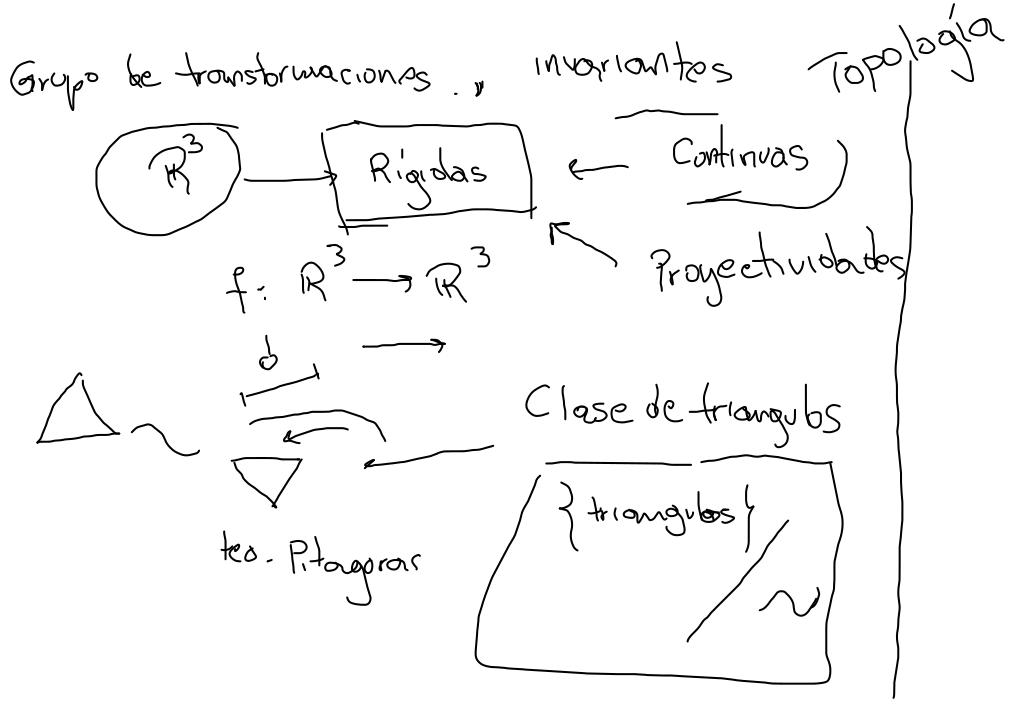 Grupo de transformaciones . , invariantes
Topología
R³ → Rígidas ← Continuas
Proyectividades
f: R³ → R³
d →
Clase de triangulos
{triangulos} / ~
~
teo. Pitagoras